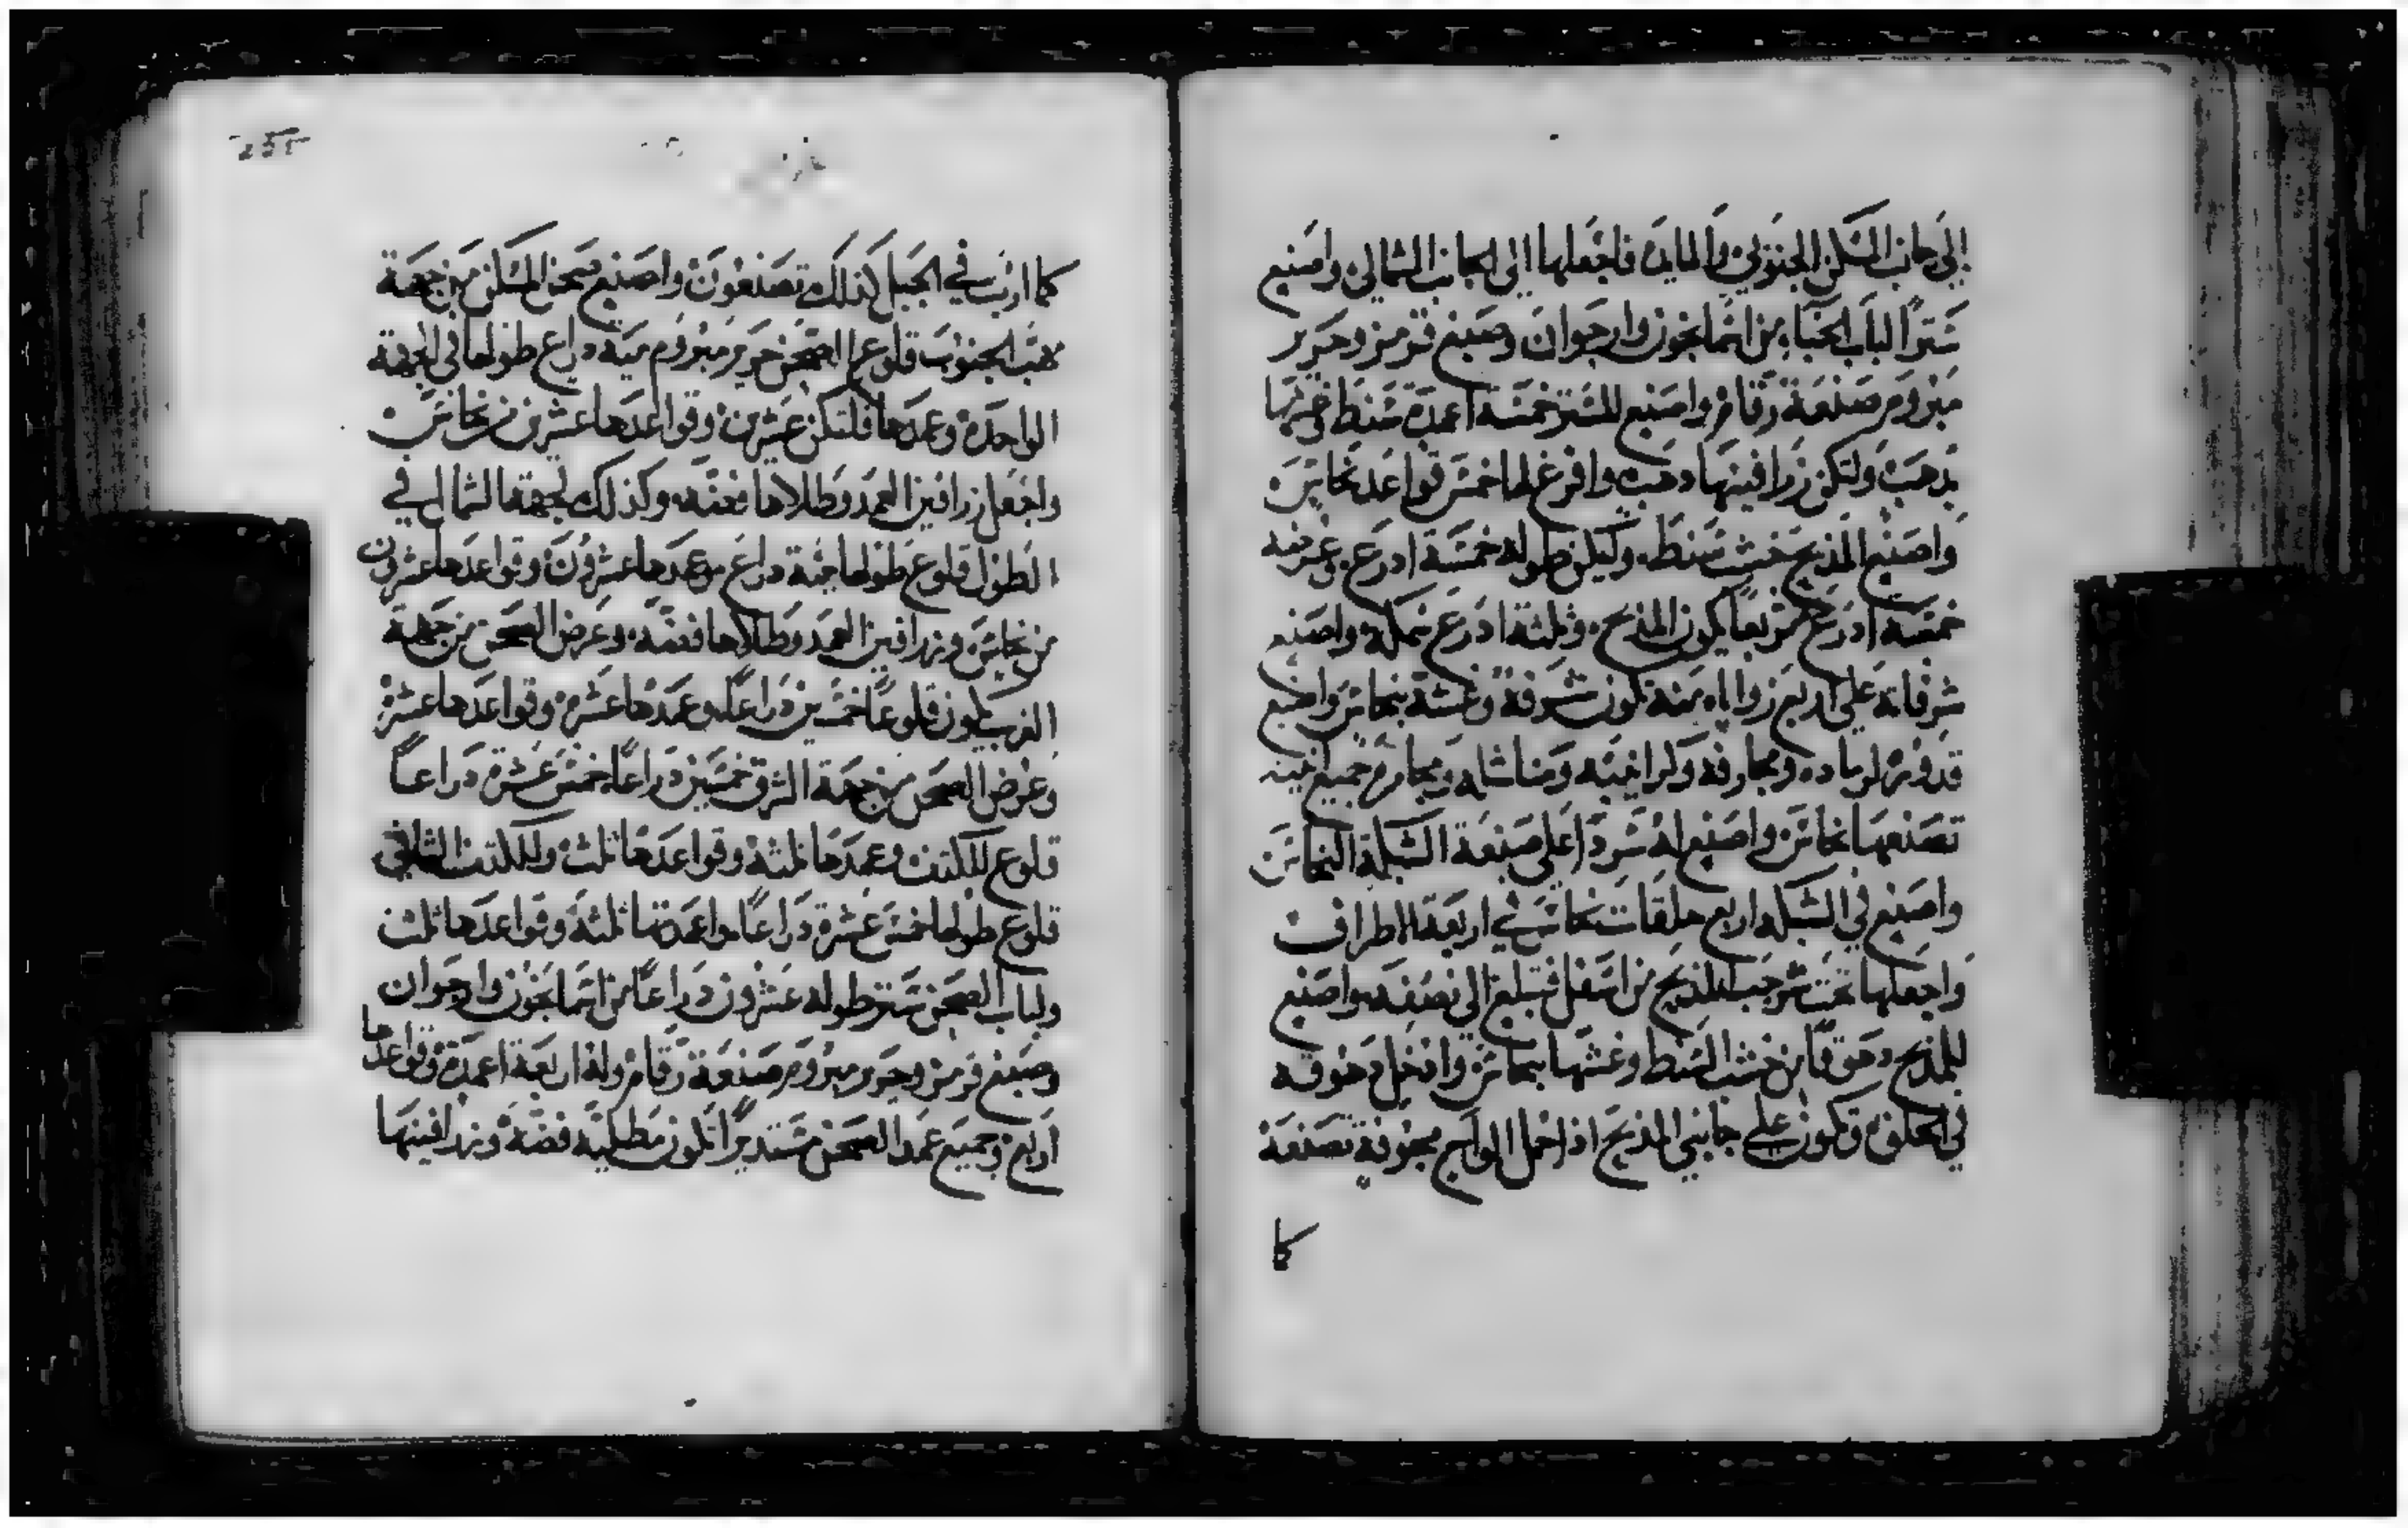 إلى جانب المسكن الجنوبي والمايدة فاجعلها الى الجانب الشمالي واصنع
سترًا لباب الخباء من اسمانجون وارجوان وصبغ قرمز وحرير
مبروم صنعة رقام واصنع للستر خمسة اعمدة سنط غشيها
بذهب ولتكن زرافينها ذهب وافرغ لها خمس قواعد نحاس
واصنع المذبح خشب سنط وليكن طوله خمسة ادرع وعرضه
خمسة ادرع مربعًا يكون المذبح وثلثة ادرع سمكه واصنع
شرفاته على اربع زواياه منه تكون شرفه وغشه بنحاس واصنع
قدوره لرماده ومجارفه وكراخيبه ومناشله ومجامره جميع انيته
تصنعها نحاس واصنع له سردًا على صنعة الشبكة النحاس
واصنع في الشبكه اربع حلقات نحاس في اربعة الاطراف
واجعلها تحت سرجب المذبح من اسفل فتبلغ الى نصفه واصنع
للمذبح دهوقًا من خشب السنط وغشها بنحاس وادخل دهوقه
في الحلق وتكون على جانبي المذبح اذا حمل الواح مجوفة تصنعه
كا
كما اريت في الجبل كذلك تصنعون واصنع صحن المسكن من جهة
مهب الجنوب قلوع الصحن حرير مبروم مية دراع طولها في الجهة
الواحدة وعمدها فلتكن عشرين وقواعدها عشرين من نحاس
واجعل زرافين العمد وطلاها فضه وكذلك لجهة الشمال في
الطول قلوع طولها مية دراع وعمدها عشرون وقواعدها عشرون
من نحاس وزرافين العمد وطلاها فضه وعرض الصحن من جهة
الغرب يكون قلوعًا خمسين دراعًا وعمدها عشرة وقواعدها عشرة
وعرض الصحن من جهة الشرق خمسين دراعًا خمس عشرة دراعًا
قلوع للكتف وعمدها ثلثة وقواعدها ثلث وللكتف الثاني
قلوع طولها خمس عشرة دراعًا واعمدتها ثلثة وقواعدها ثلث
ولباب الصحن ستر طوله عشرون دراعًا من اسمانجون وارجوان
وصبغ قرمز وحرير مبروم صنعة رقام وله اربعة اعمدة وقواعدها
اربع وجميع عمد الصحن مستديرًا تكون مطليه فضة وزرافينها